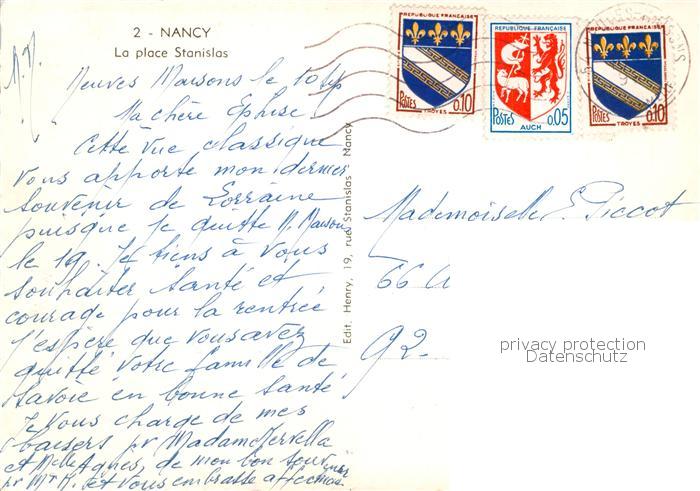 2 - NANCY
La place Stanislas
Neuves Maisons le 10
Ma chère
Cette vue classique
vous apporte mon dernier
souvenir de Lorraine
puisque je quitte N. Maisons
le 19. Je tiens à vous
souhaiter santé et
courage pour la rentrée
J'espère que vous avez
quitté votre famille de
Savoie en bonne santé
Je vous charge de mes
baisers pr Madame
et Melle Agnès, de mon bon souvenir
pr Mr H. et vous embrasse
Edit. Henry, 19, rue Stanislas - Nancy
REPUBLIQUE FRANÇAISE
POSTES
0,10
TROYES
REPUBLIQUE FRANÇAISE
POSTES
0,05
AUCH
REPUBLIQUE FRANÇAISE
POSTES
0,10
TROYES
Mademoiselle E. Piccot
66
92
privacy protection
Datenschutz